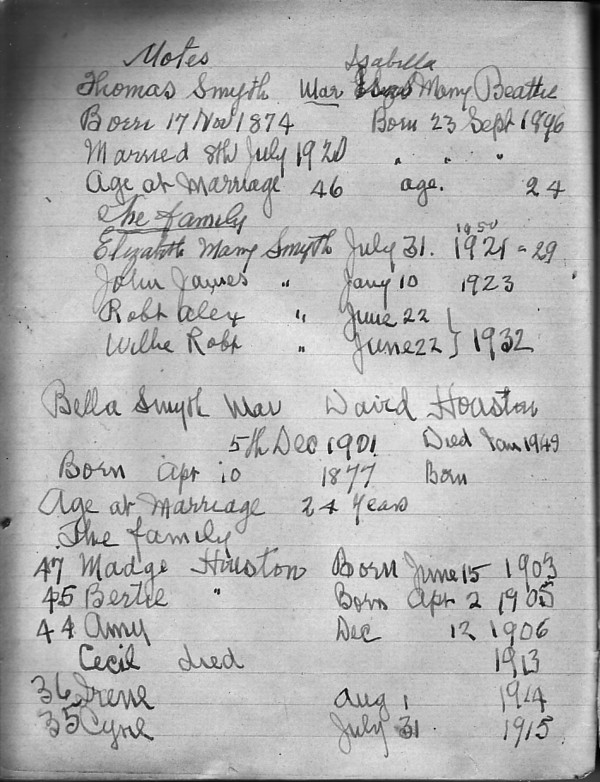 Notes Isabella
Thomas Smyth Mar Mary Beattie
Born 17 Nov 1874 Born 23 Sept 1896
Married 8th July 1920 " " "
Age at Marriage 46 age. 24
The family
1950
Elizabeth Mary Smyth July 31. 1921 = 29
John James " Jany 10 1923
Robt Alex " June 22 }
Willie Robt " June 22 } 1932
Bella Smyth Mar David Houston
5th Dec 1901 Died Jan 1949
Born Apr 10 1877 Born
Age at Marriage 24 Years
The family
47 Madge Houston Born June 15 1903
45 Bertie " Born Apr 2 1905
44 Amy Dec 12 1906
Cecil died 1913
36 Irene Aug 1 1914
35 Cyril July 31 1915